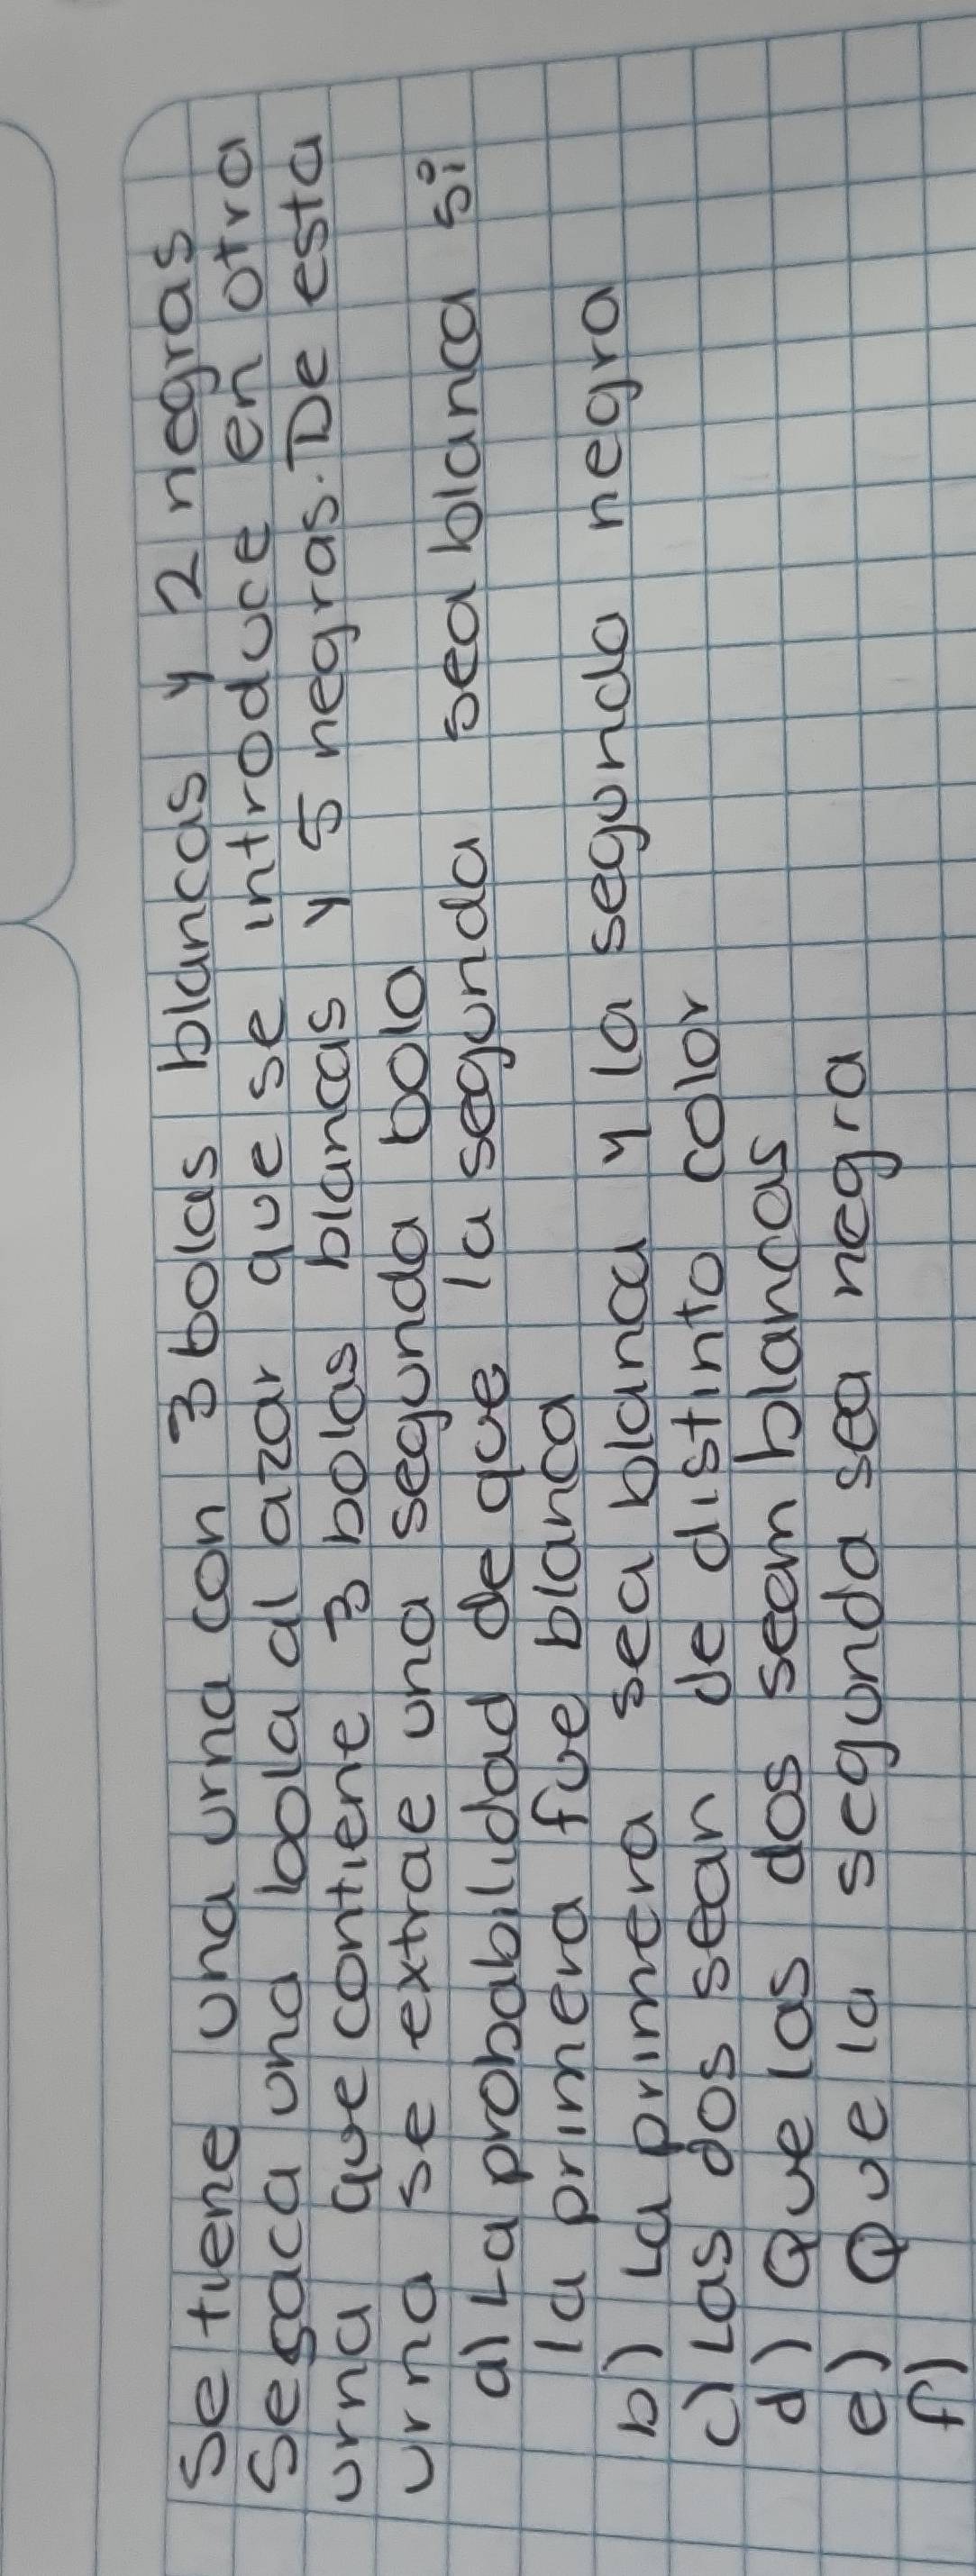 Se tiene una urna con 3 bolas blancas y 2 negras
Se saca una bola al azar que se introduce en otra
urna que contiene 3 bolas blancas y 5 negras. De esta
urna se extrae una segunda bola
a) La probabilidad de que la segunda sea blanca si
la primera fue blanca
b) La primera sea blanca y la segunda negra
c) Las dos sean de distinto color
d) Que las dos sean blancas
e) Que la segunda sea negra
f)